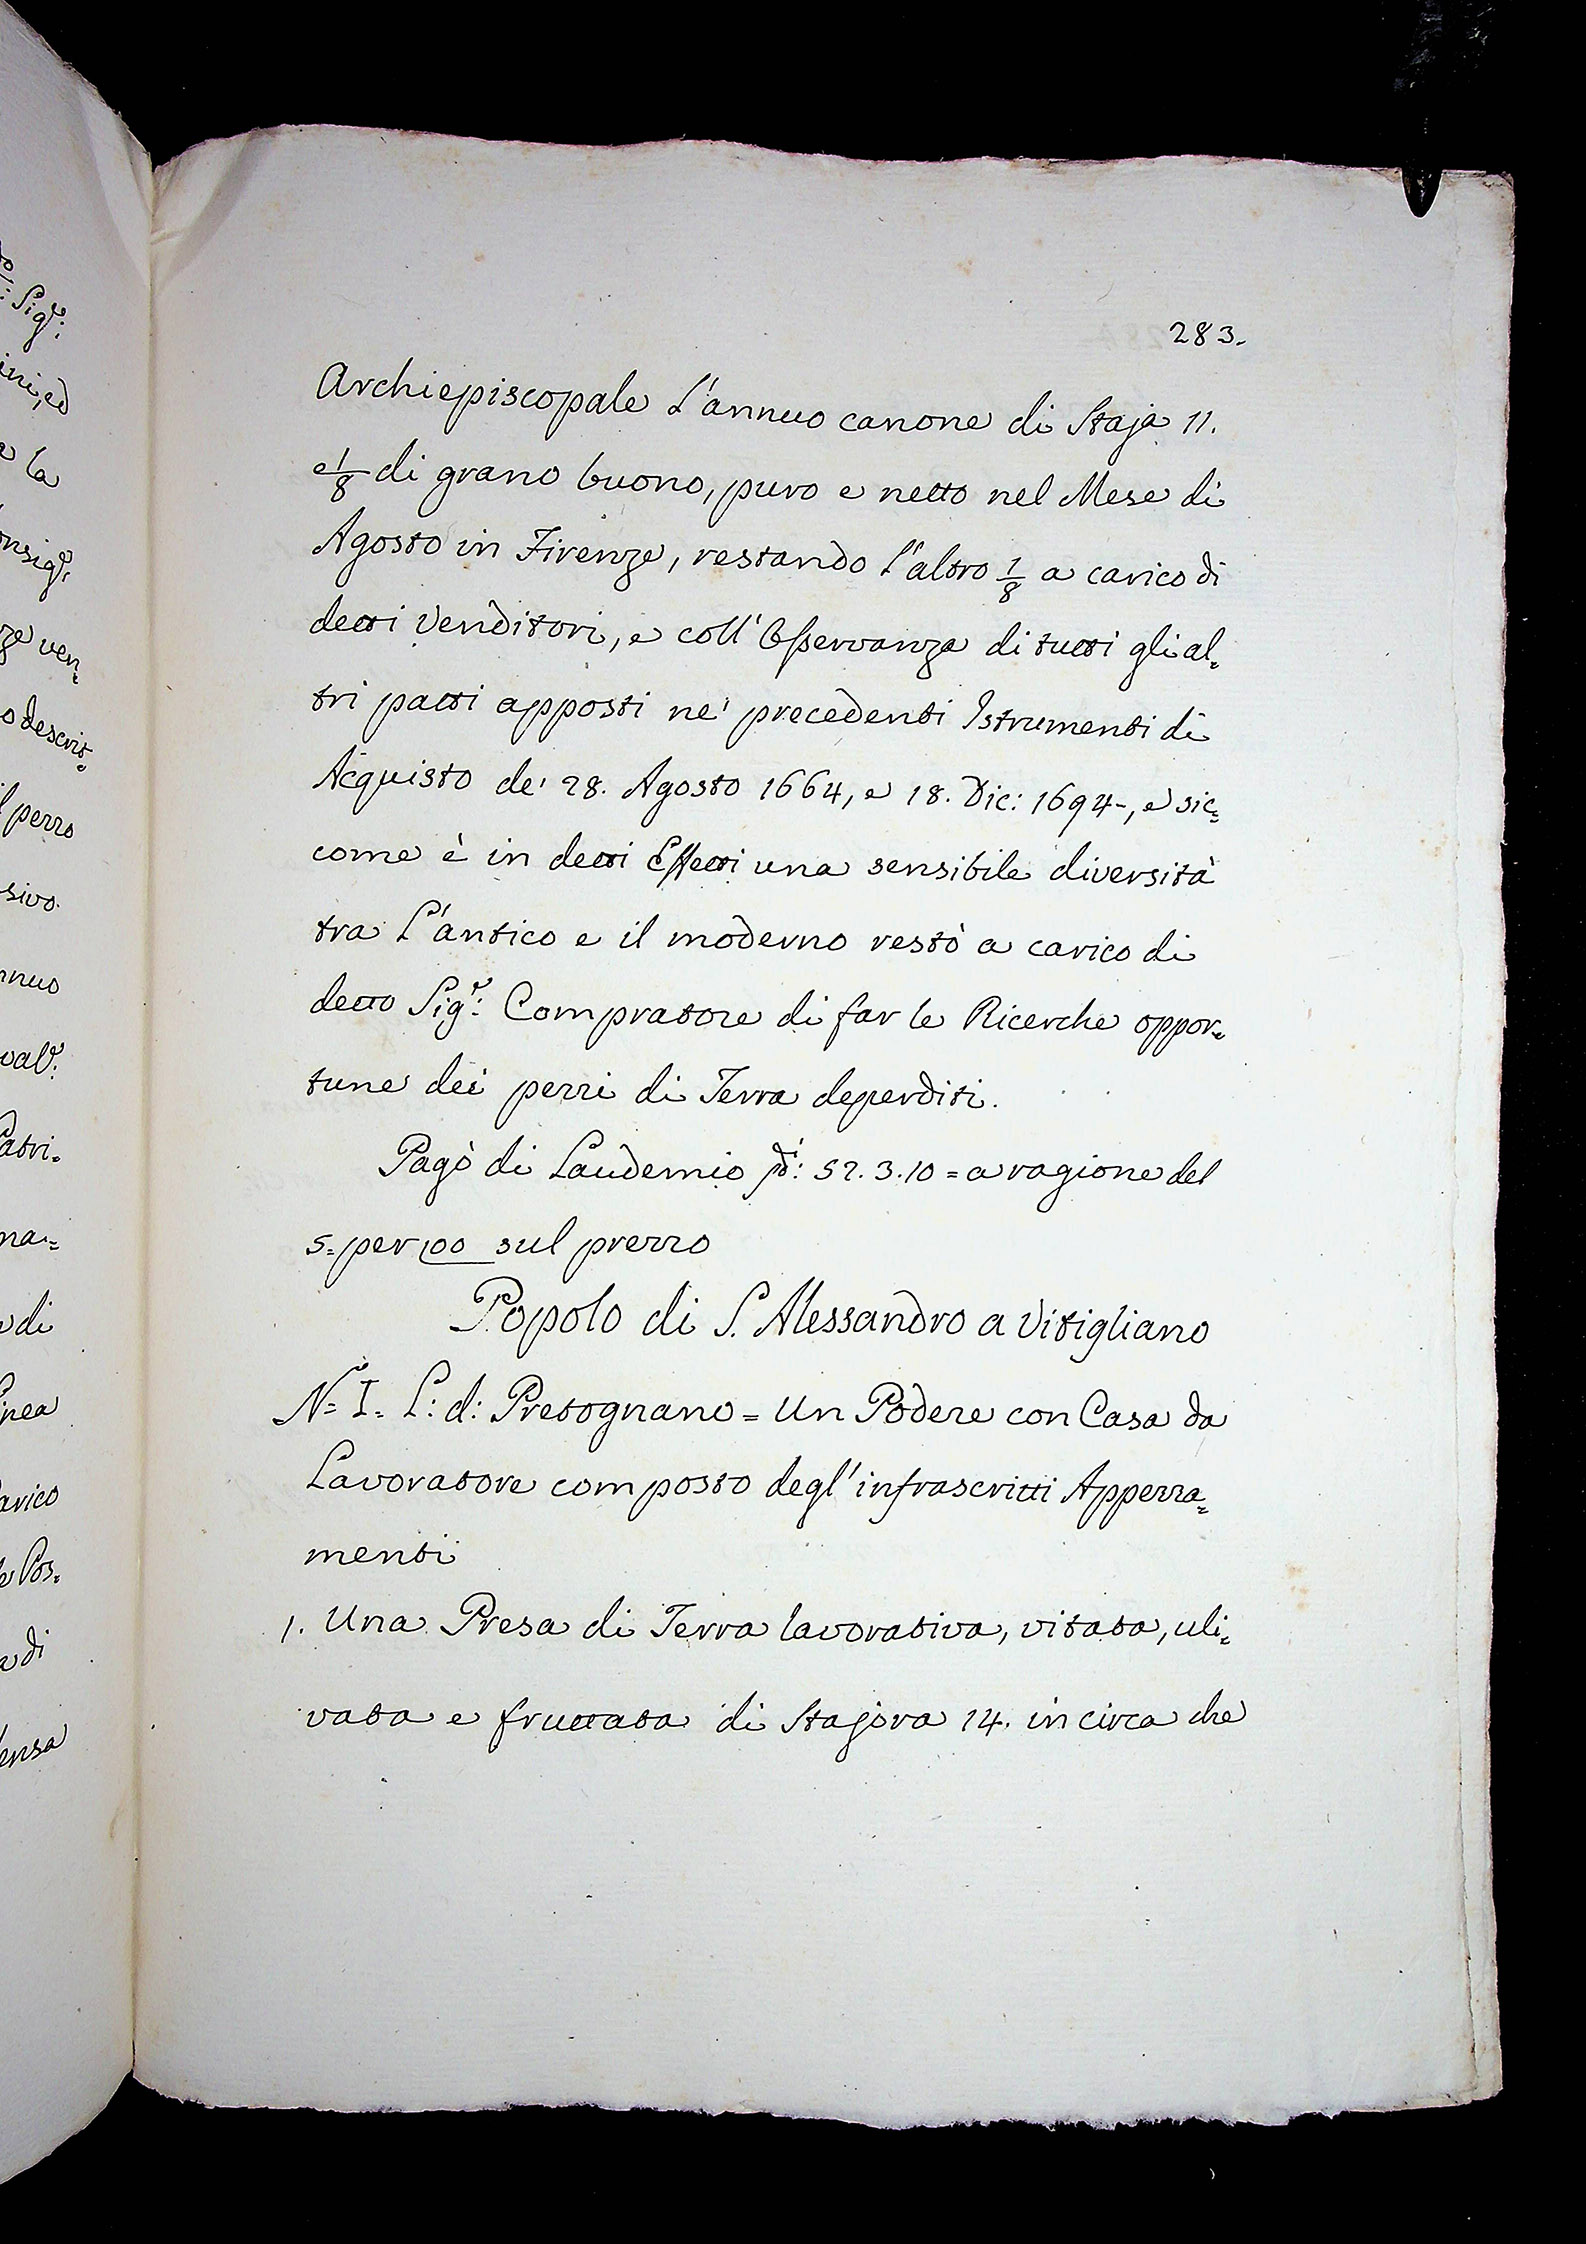 283.
Archiepiscopale l'annuo canone di Staja 11.
e 1/8 di grano buono, puro e netto nel Mese di
Agosto in Firenze, restando l'altro 1/8 a carico di
detti Venditori, e coll'Osservanza di tutti gli al=
tri patti apposti ne' precedenti Istrumenti di
Acquisto de' 28. Agosto 1664, e 18. Dic: 1694-, e sic=
come è in detti Effetti una sensibile diversità
tra l'antico e il moderno restò a carico di
detto Sig.r: Compratore di far le Ricerche oppor=
tune dei pezzi di Terra deperditi.
Pagò di Laudemio 52.3.10 = a ragione del
5= per 100 sul prezzo
Popolo di S. Alessandro a Vitigliano
N= I= L: d: Pretognano = Un Podere con Casa da
Lavoratore composto degl'infrascritti Appezza=
menti
1. Una Presa di Terra lavorativa, vitata, uli=
vata e fruttata di Stajora 14. in circa che
Sig.r:
ini, ed
la
onsig.r:
ze ven=
o descrit=
il pezzo
sivo.
nnuo
Patri=
ma=
di
inea
Carico
e Pos=
a di
ensa